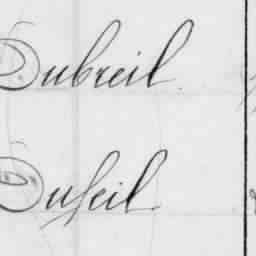 Dubreil
Dufeil